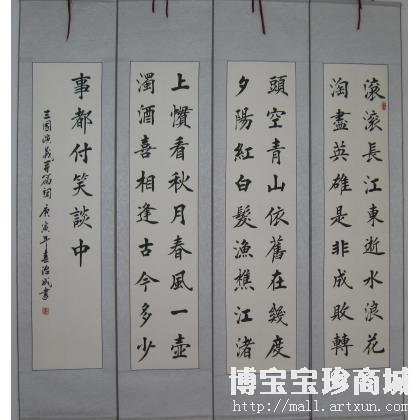 滾滾長江東逝水浪花
淘盡英雄是非成敗轉
頭空青山依舊在幾度
夕陽紅白髮漁樵江渚
上慣看秋月春風一壺
濁酒喜相逢古今多少
事都付笑談中
三國演義開篇詞 庚寅年春治成書
博宝宝珍商城
http://mall.artxun.com